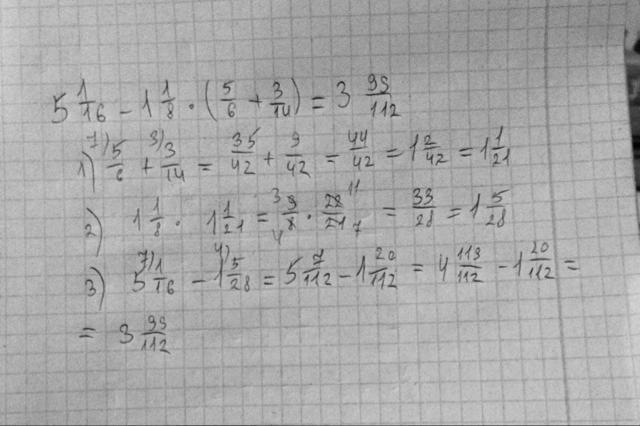 5 1/16 - 1 1/8 · (5/6 + 3/14) = 3 99/112
1) 7) 5/6 + 3) 3/14 = 35/42 + 9/42 = 44/42 = 1 2/42 = 1 1/21
2) 1 1/8 · 1 1/21 = 3 9/8 4 · 22/21 11 7 = 33/28 = 1 5/28
3) 7) 5 1/16 - 4) 1 5/28 = 5 7/112 - 1 20/112 = 4 119/112 - 1 20/112 =
= 3 99/112